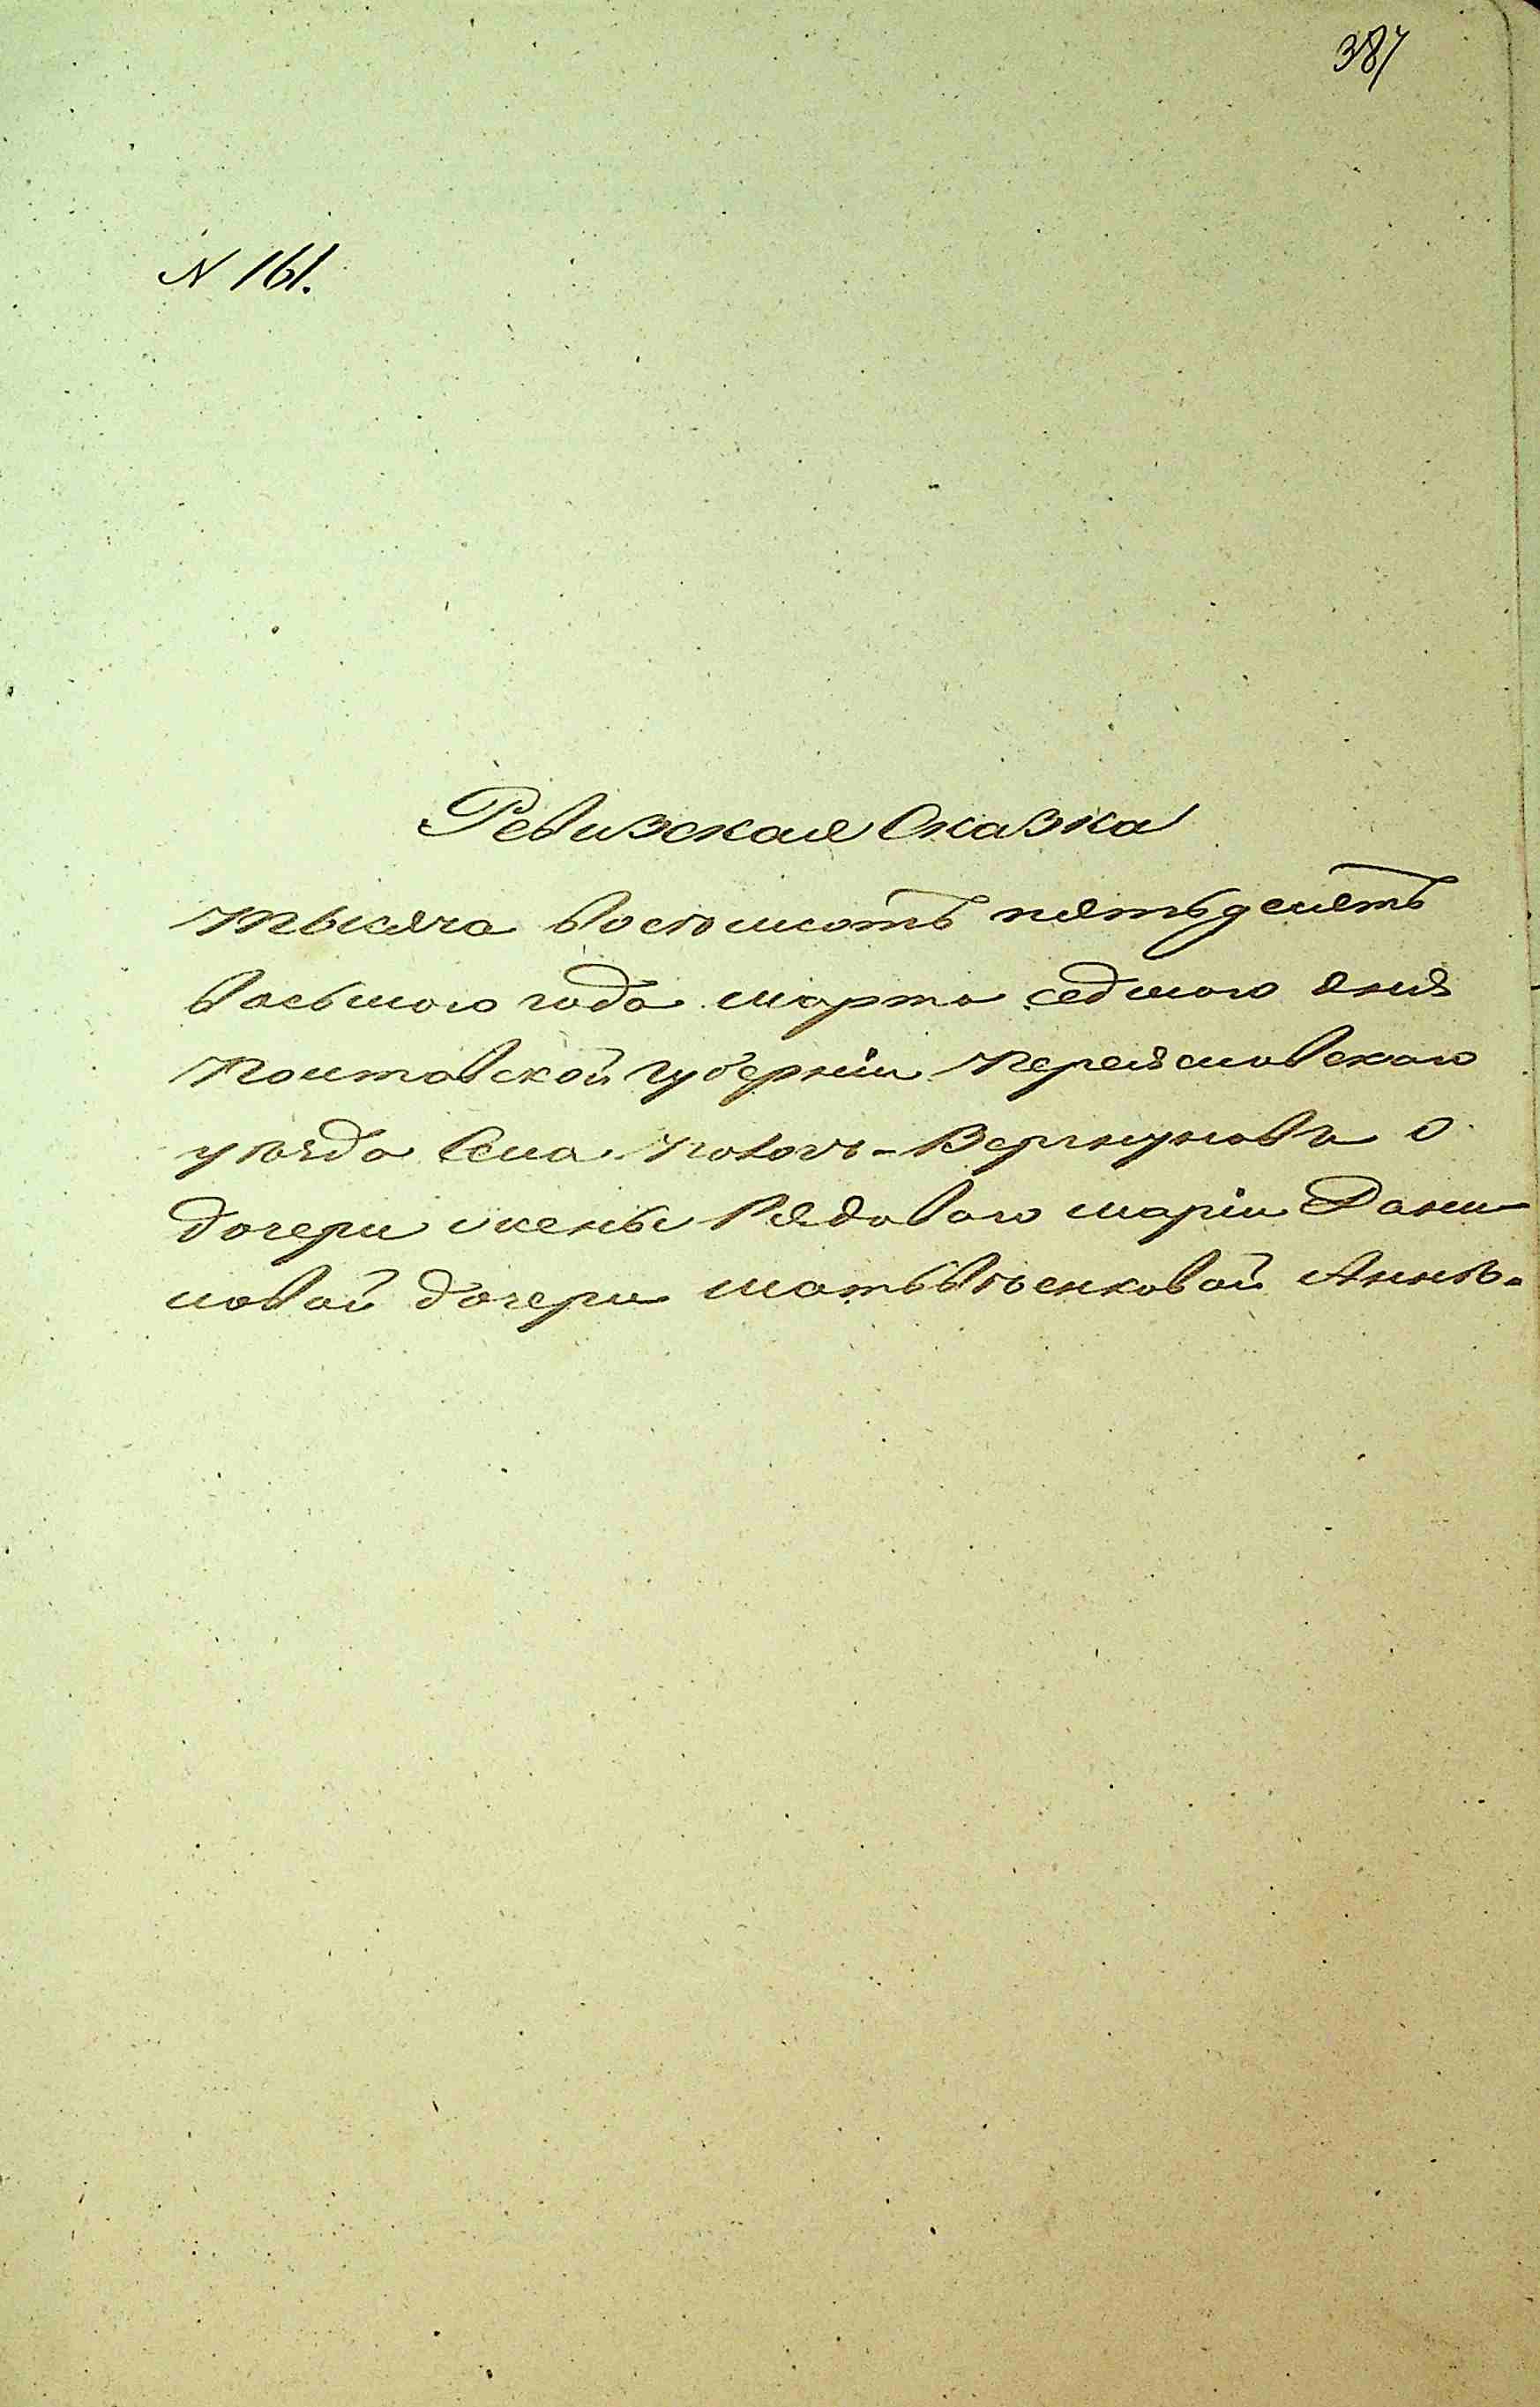 387
N 161.
Ревизская Сказка
тысяча восемьсотъ пятьдесятъ
восьмого года марта седмого дня
Полтавской губерніи Переясловского
уѣзда Села Попова-
дочери жены Рядового маріи Дани
ловой дочери матьвѣенковой Аннѣ.